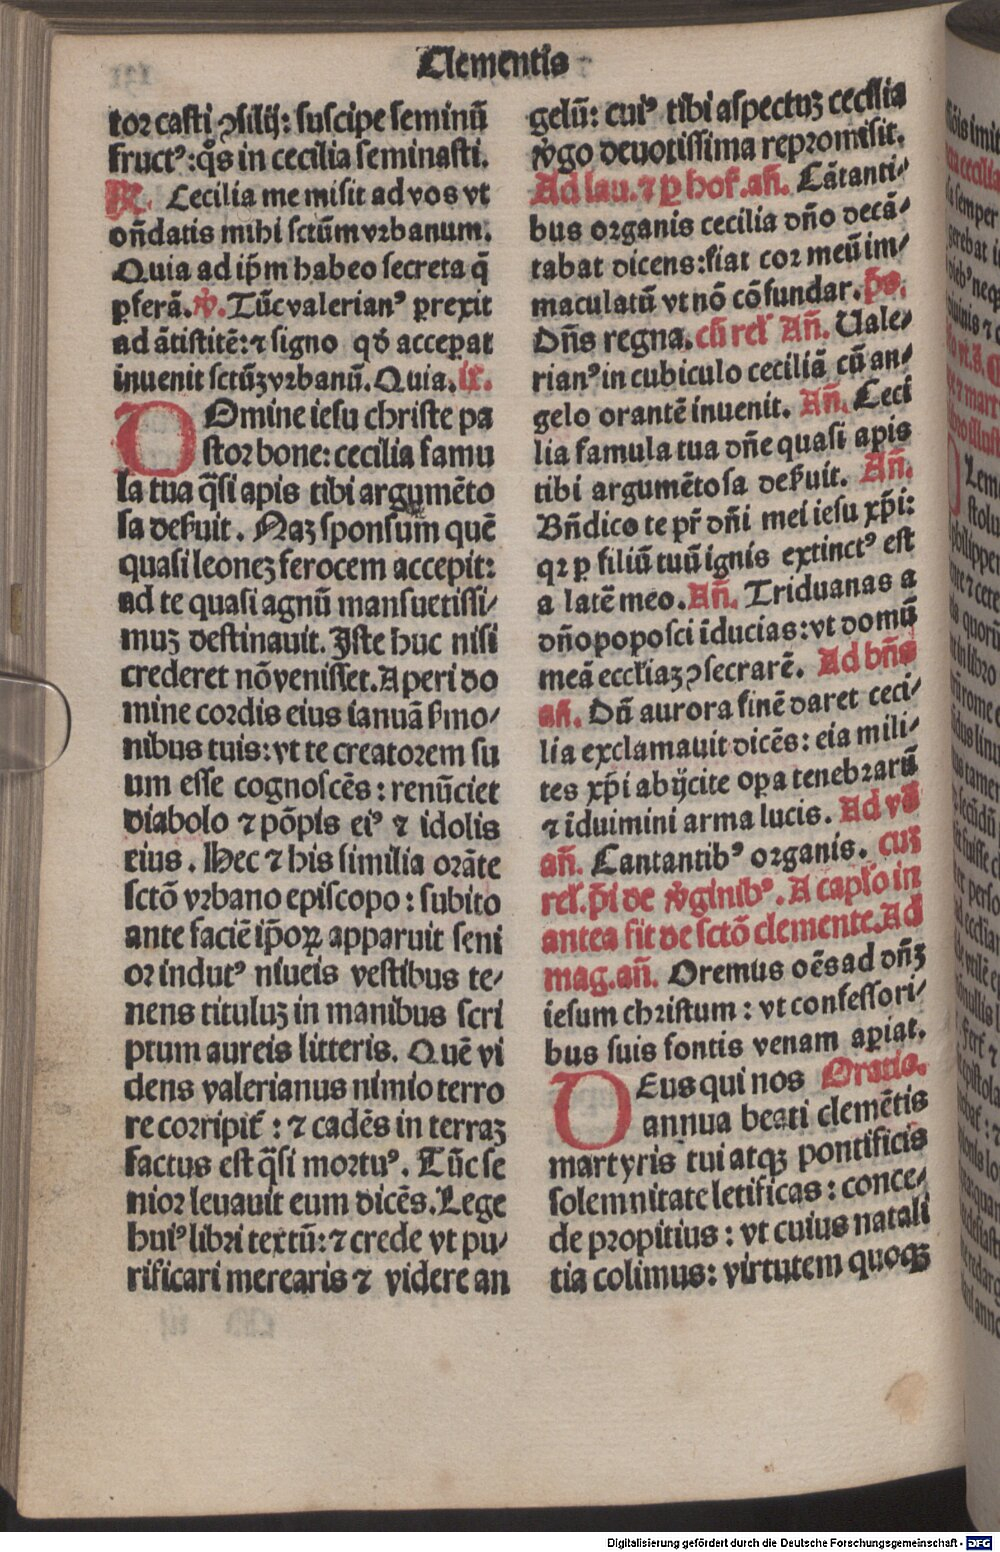 Clementis
tor casti ꝯsilij: suscipe seminū
fruct⁹: q̄s in cecilia seminasti.
R̄. Cecilia me misit ad vos vt
on̄datis mihi sctūm vrbanum.
Quia ad ip̄m habeo secreta q̄
ꝑferā. v̄. Tūc valerian⁹ ꝑrexit
ad ātistitē: ⁊ signo qd̄ acceꝑat
inuenit sctūꝫ vrbanū. Quia. ix.
DOmine iesu christe pa
stor bone: cecilia famu
la tua q̄si apis tibi argumēto
sa deſuit. Naꝫ sponsum quē
quasi leoneꝫ ferocem accepit:
ad te quasi agnū mansuetissi⸗
muꝫ destinauit. Iste huc nisi
crederet nōvenisset. Aperi do
mine cordis eius ianuā ẜmo⸗
nibus tuis: vt te creatorem su
um esse cognoscēs: renūciet
diabolo ⁊ pōpis ei⁹ ⁊ idolis
eius. Hec ⁊ his similia orāte
sctō vrbano episcopo: subito
ante faciē ip̄oꝝ apparuit seni
or indut⁹ niueis vestibus te⸗
nens tituluꝫ in manibus scri
ptum aureis litteris. Quē vi
dens valerianus nimio terro
re corripit̄: ⁊ cadēs in terraꝫ
factus est q̄si mortu⁹. Tūc se
nior leuauit eum dicēs. Lege
hui⁹ libri textū: ⁊ crede vt pu⸗
rificari merearis ⁊ videre an
gelū: cui⁹ tibi aspectuꝫ cecilia
v̄go deuotissima repromisit.
Ad lau. ⁊ ꝑ hor̄. an̄. Cātanti⸗
bus organis cecilia dn̄o decā⸗
tabat dicens: fiat cor meū im⸗
maculatū vt nō cōfundar. p̄s.
Dn̄s regna. cū rel̄ An̄. Uale⸗
rian⁹ in cubiculo ceciliā cū an⸗
gelo orantē inuenit. An̄. Ceci
lia famula tua dn̄e quasi apis
tibi argumētosa deẜuit. An̄.
Bn̄dico te pr̄ dn̄i mei iesu xp̄i:
qꝛ ꝑ filiū tuū ignis extinct⁹ est
a latē meo. An̄. Triduanas a
dn̄o poposci īducias: vt domū
meā eccl̄iaꝫ ꝯsecrarē. Ad bn̄s
an̄. Dū aurora finē daret ceci⸗
lia exclamauit dicēs: eia mili⸗
tes xp̄i abijcite oꝑa tenebrarū
⁊ īduimini arma lucis. Ad vē
an̄. Cantantib⁹ organis. cuꝫ
rel̄. p̄i de v̄ginib⁹. A cap̄lo in
antea fit de sctō clemente. Ad
mag. an̄. Oremus oēs ad dn̄ꝫ
iesum christum: vt confessori⸗
bus suis fontis venam aꝑiat.
DEus qui nos Oratio.
annua beati clemētis
martyris tui atqꝫ pontificis
solemnitate letificas: conce⸗
de propitius: vt cuius natali
tia colimus: virtutem quoqꝫ
Digitalisierung gefördert durch die Deutsche Forschungsgemeinschaft - DFG